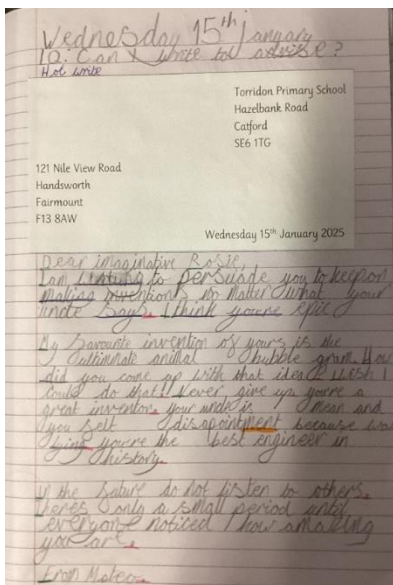 Wednesday 15th January
LQ: Can I write to advise?
Hot write
Torridon Primary School
Hazelbank Road
Catford
SE6 1TG
121 Nile View Road
Handsworth
Fairmount
F13 8AW
Wednesday 15th January 2025
Dear imaginative Rosie,
I am to persuade you to keep on
making inventions no matter what your
uncle says. I think you're epic
My favourite invention of yours is the
animal bubble gram. How
did you come up with that idea? Wish I
could do that! Never give up, you're a
great inventor. your uncle is mean and
you felt disapointment because was
lying you're the best engineer in
history.
In the future do not listen to others.
theres only a small period until
everyone noticed how amazing
you are.
From Mateo.